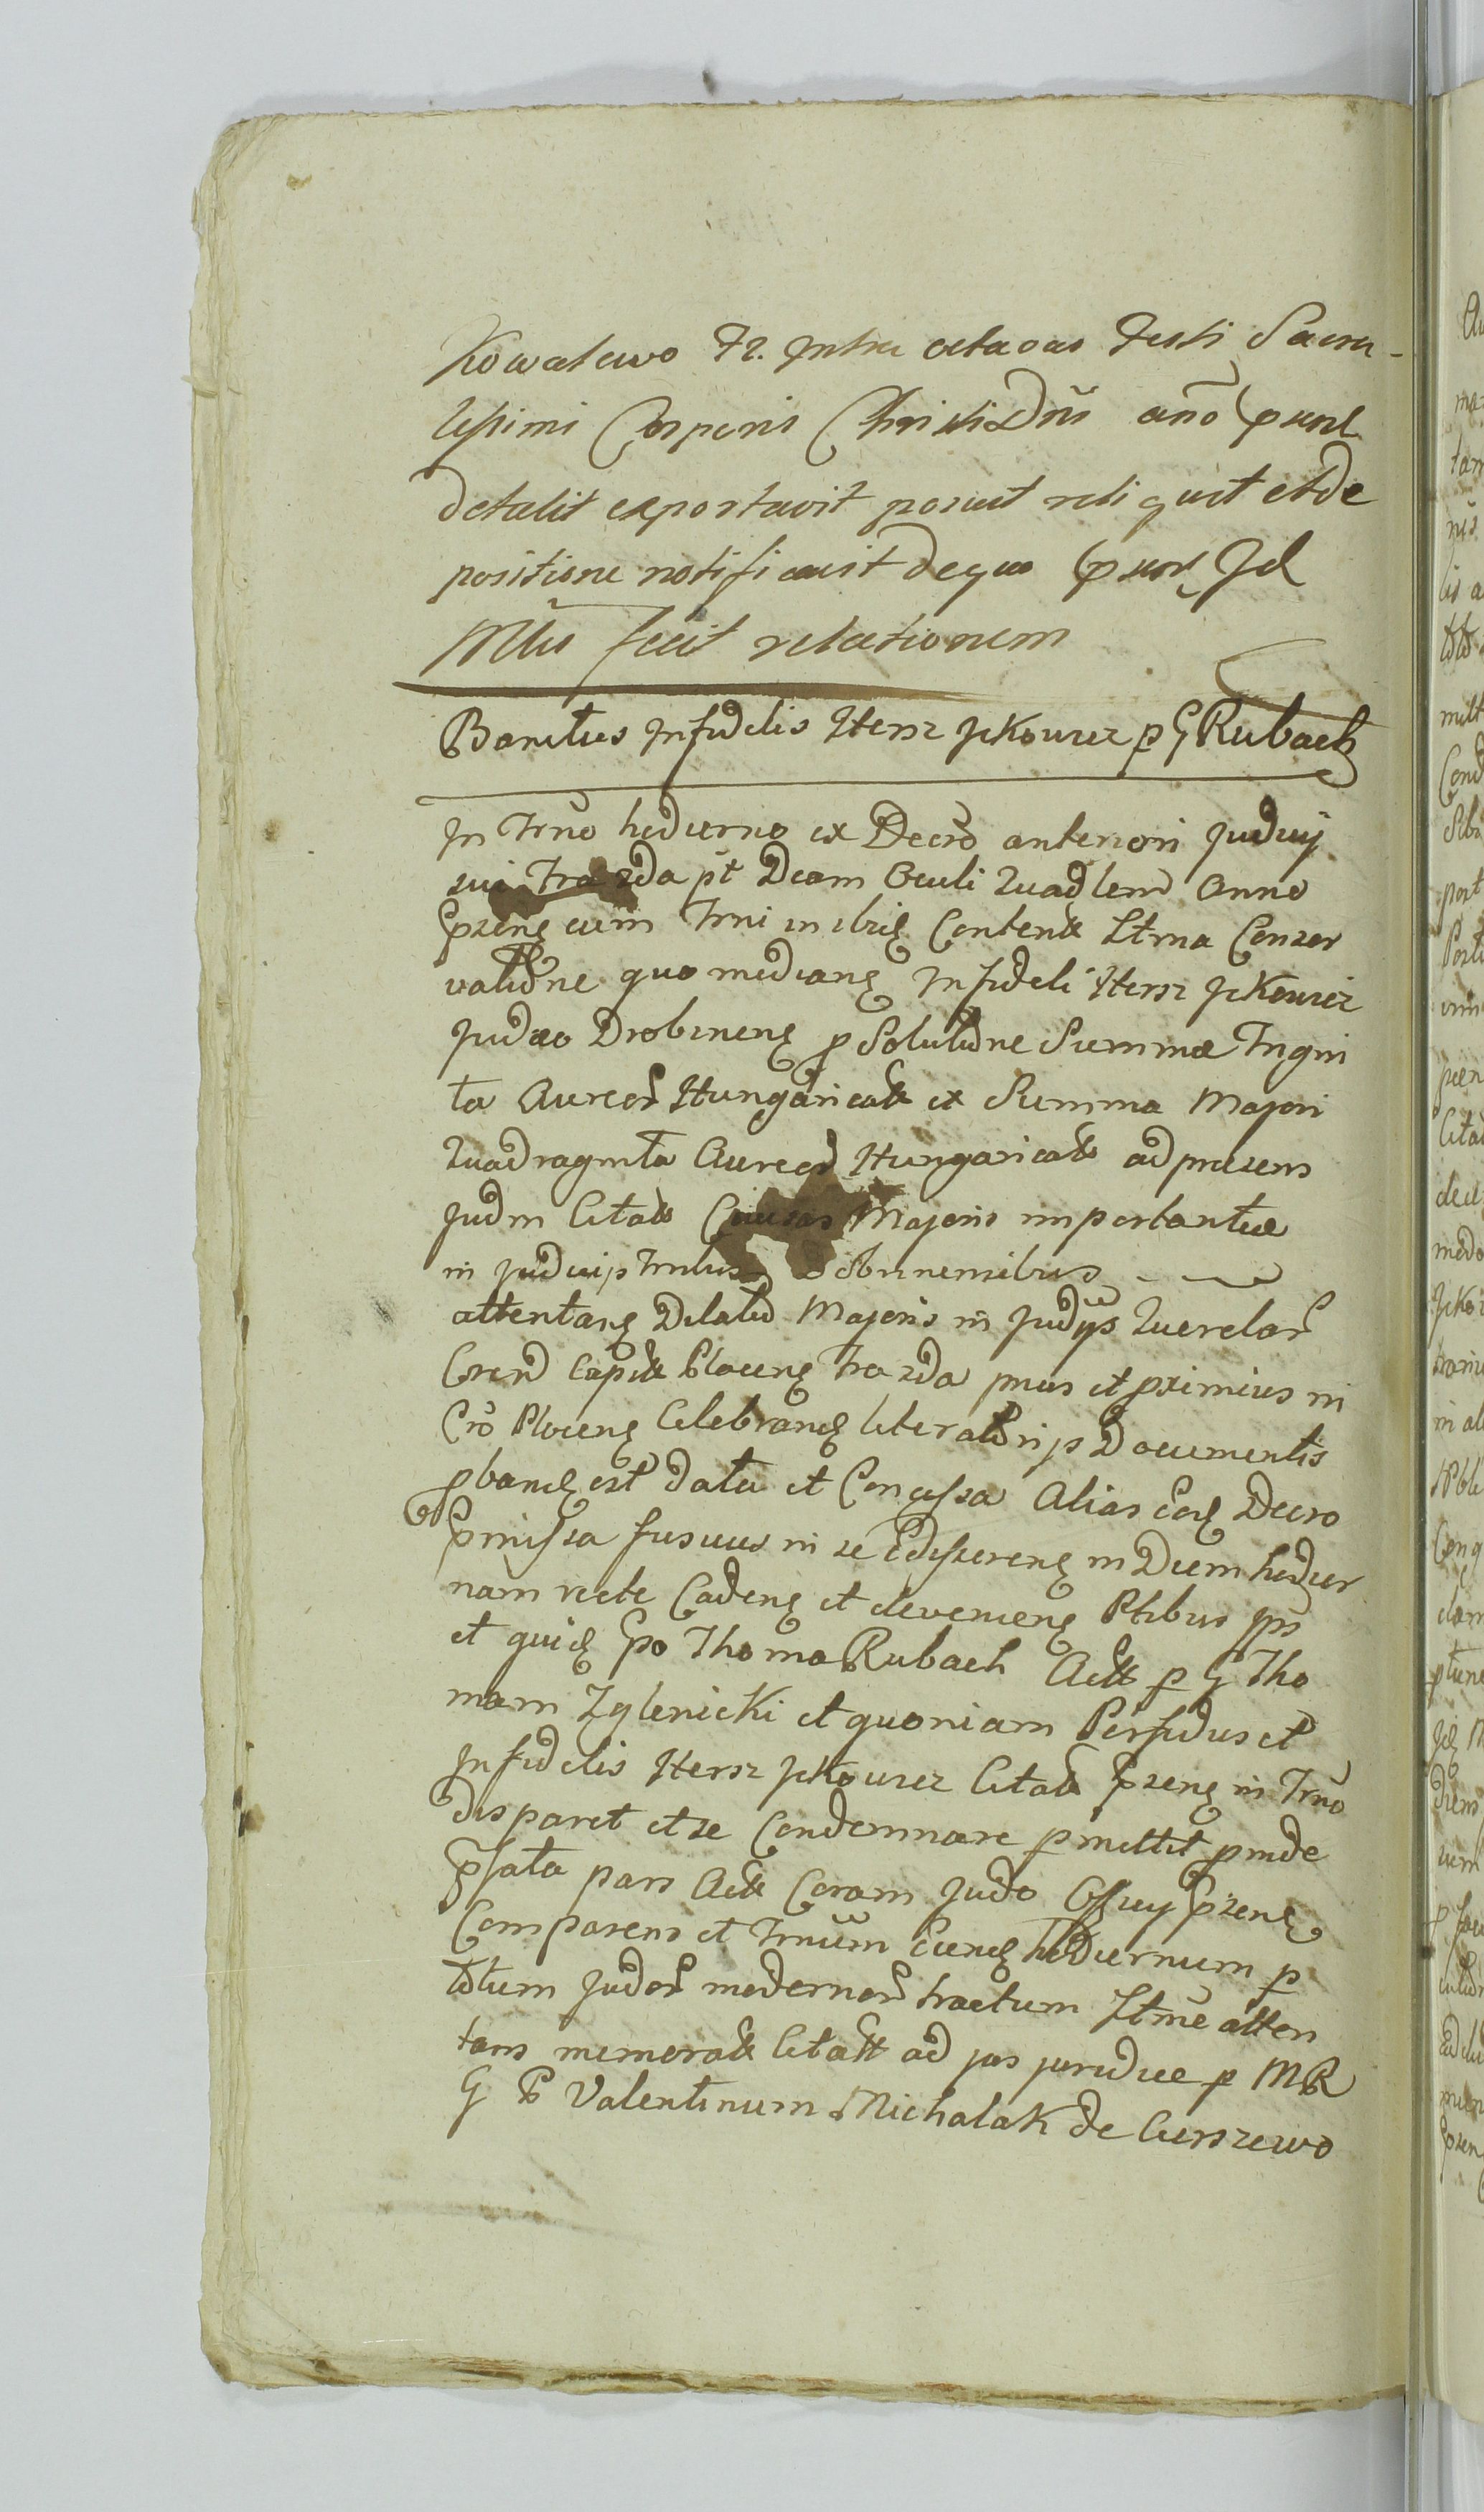 Kowalewo Fr. Intra octavas Festi Sacra-
tissimi Corporis Christi Dni año pnt
detulit exportavit posuit reliquit et de
positione notificavit de quo pnt Jd
Mlis fecit relationem
Banitus Infidelis Hersz Jckowicz p G Rubach
In Trno hodierno ex Decro anteriori Judicij
sui Fra 2da pt Dcam Oculi Quadlem Anno
pzenq cum Trni in ibiq Content Ltma Conser
vatione quo medianq Infideli Hersz Jckowicz
Judæo Drobinenq p Solutione Summæ Trigin
ta Aureor Hungaricalt ex Summa Majori
Quadraginta Aureor Hungaricalt ad præsens
Judm Citatt Causas Majoris importantiæ
in Judicijs Trnlibus obtinensibus
attentanq Dilatio Majoris in Judijs Querelar
Coren Capit Plocenq Fra 2da prius et proximius in
Cro Plocenq Celebranq literatorijs Documentis
pbanq est data et Concessa Alias eoq Decro
præmissa fusius in se Edisserenq in Diem hodier
nam recte Cadenq et devenienq Ptibus Ips
et quiq Gso Thoma Rubach Act p G Tho
mam Zglenicki et quoniam Perfidus et
Infidelis Hersz Jckowicz Citatt pzenq in Trno
disparet et se Condemnare pmittit pinde
pfata pars Act Coram Judo Offcij pzenq
Comparens et Trnum Eunq hodiernum p
totum Judor modernor tractum Ltme atten
tans memoratt Citatt ad jus juridice p MR
G P Valentinum Michalak de Cieszewo